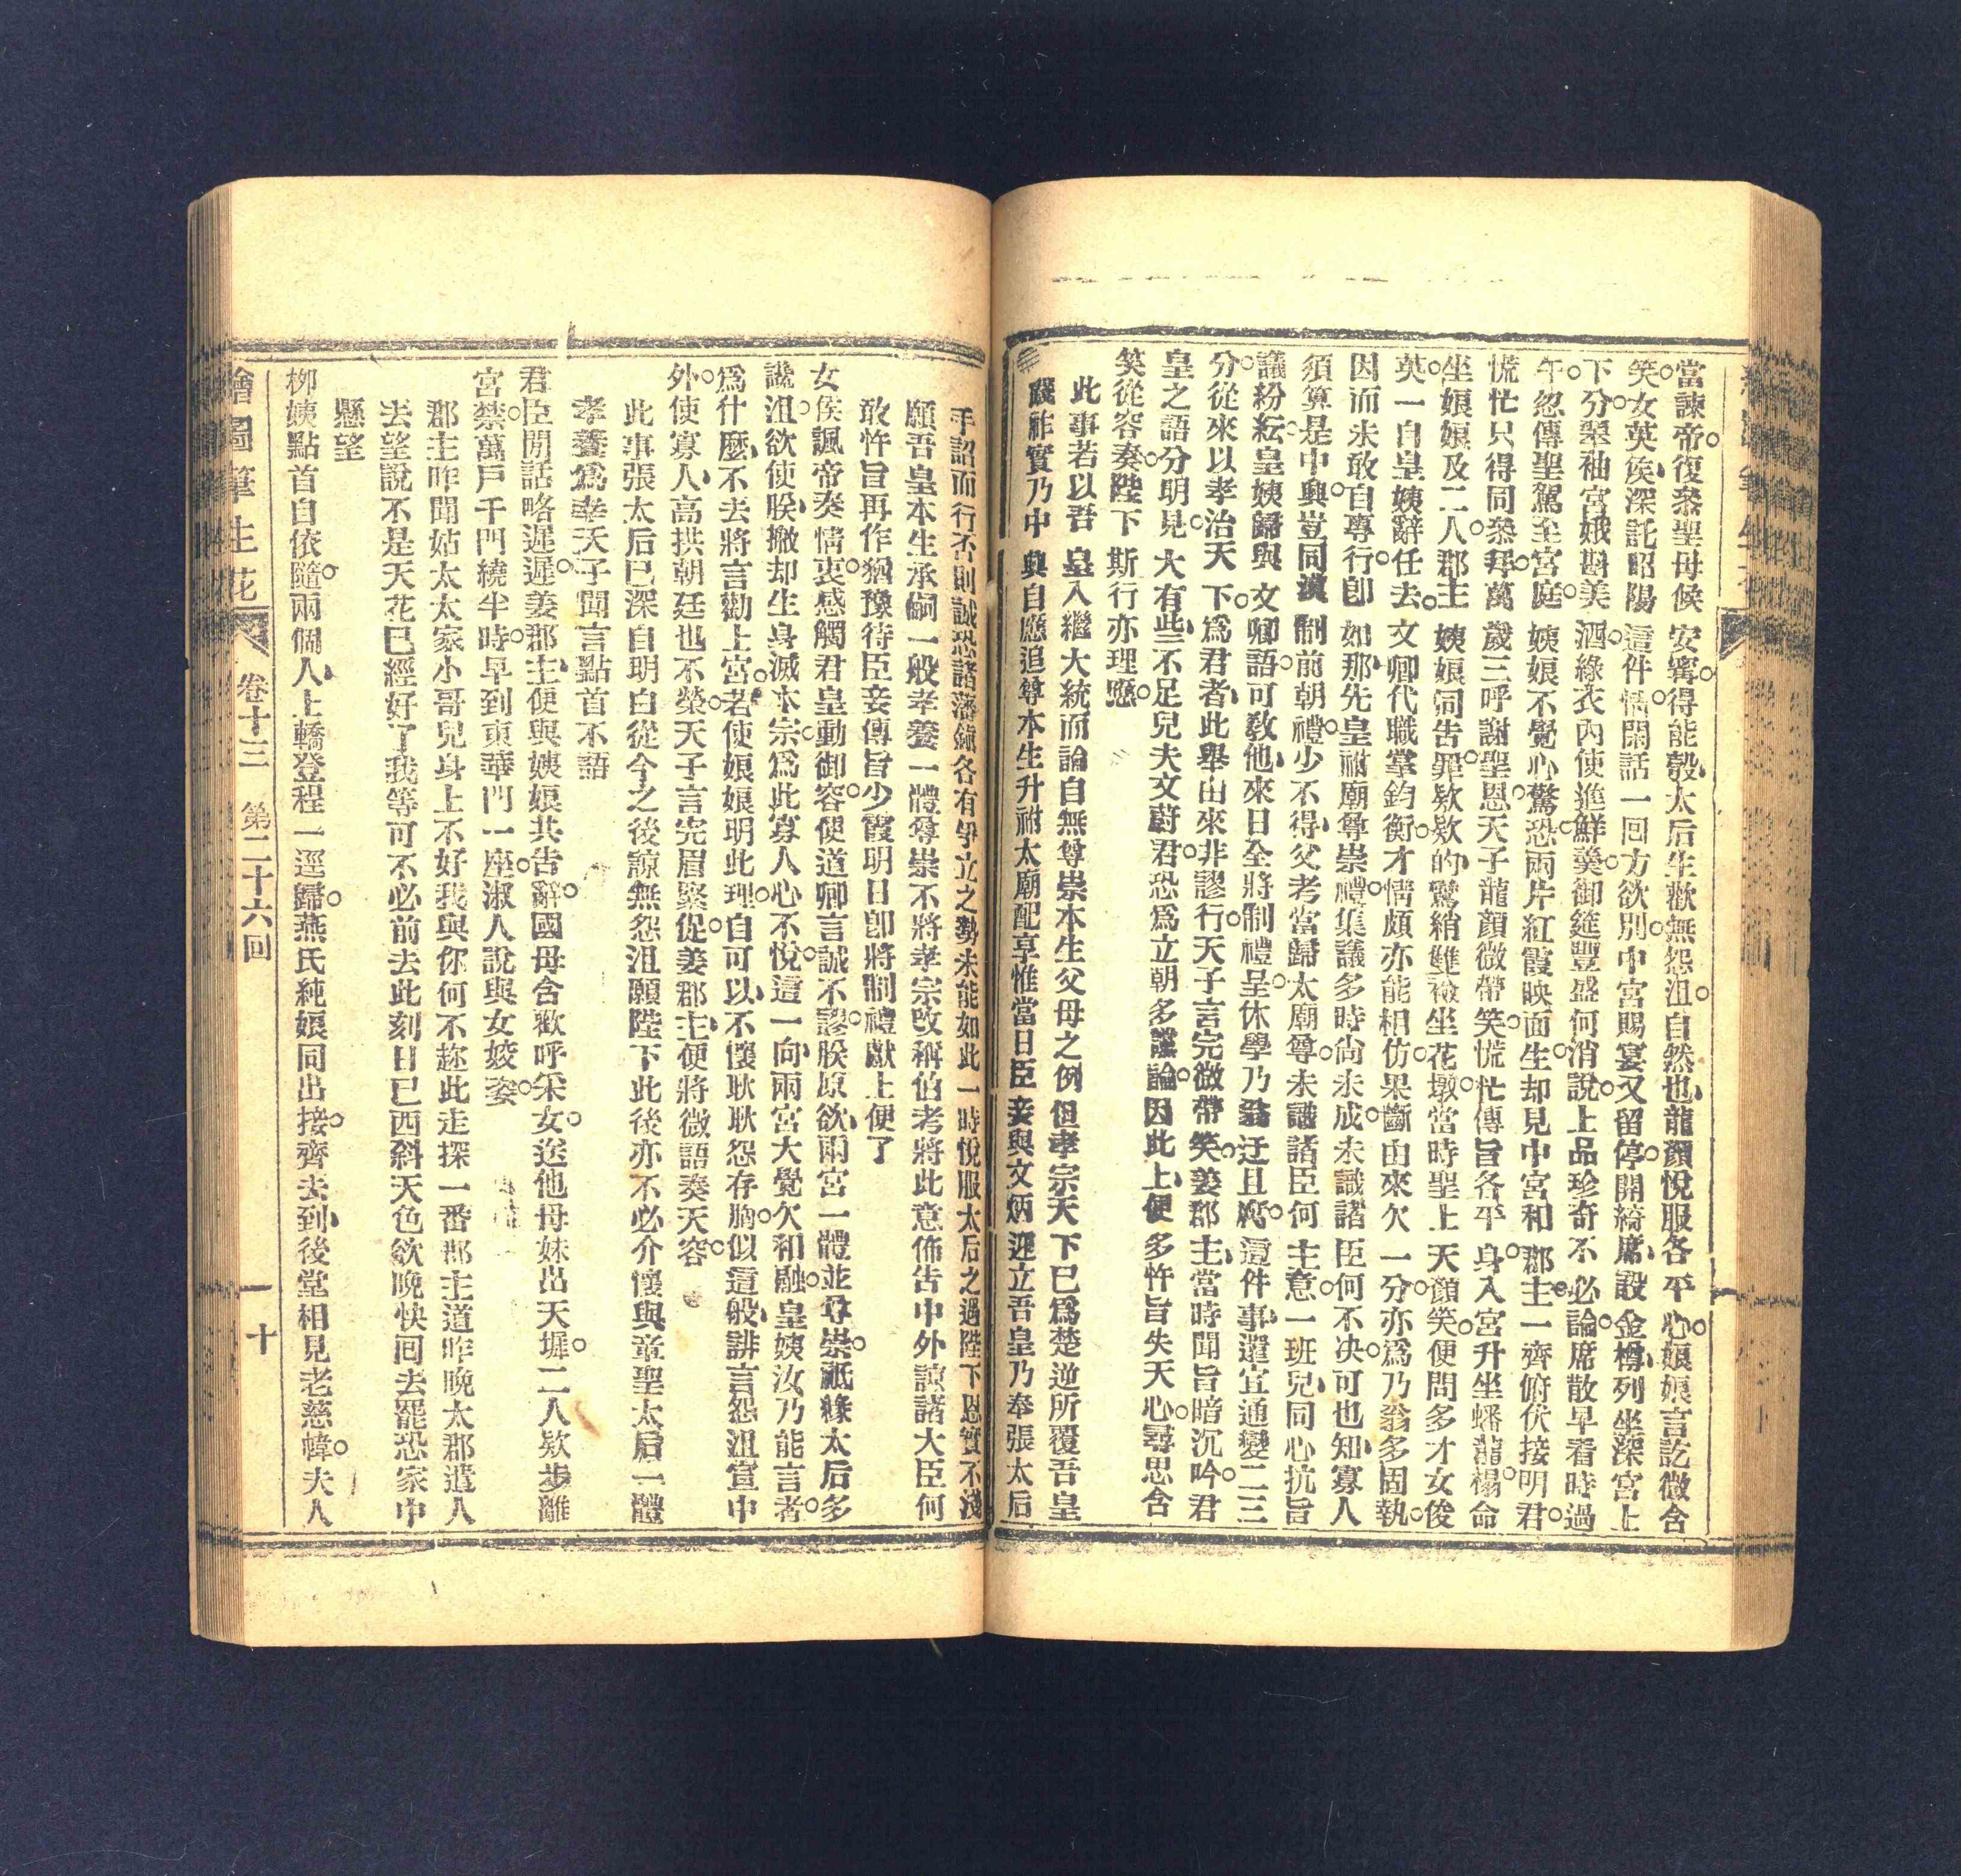 當諫帝復叅聖母候安寗得能彀太后生歡無怨沮自然也龍顏悅服各平心娘娘言訖微含
笑女英侯深託昭陽這件情閑話一回方欲別中宮賜宴又留停開綺席設金樽列坐深宮上
下分翠袖宮娥斟美酒綠衣內使進鮮羹御筵豐盛何消說上品珍奇不必論席散早看時過
午忽傳聖駕至宮庭姨娘不覺心驚恐兩片紅霞映面生却見中宮和郡主一齊俯伏接明君
慌忙只得同叅拜萬歲三呼謝聖恩天子龍顏微帶笑慌忙傳旨各平身入宮升坐蟠龍榻命
坐娘娘及二人郡主姨娘同告罪欵欵的鸞綃雙襝坐花墩當時聖上天顏笑便問多才女俊
英一自皇姨辭任去文卿代職掌鈞衡才情頗亦能相仿果斷由來欠一分亦爲乃翁多固執
因而未敢自專行卽如那先皇禰廟尊崇禮集議多時尙未成未識諸臣何不決可也知寡人
須算是中興豈同漢制前朝禮少不得父考當歸太廟尊未識諸臣何主意一班兒同心抗旨
議紛紜皇姨歸與文卿語可敎他來日全將制禮呈休學乃翁迂且腐這件事還宜通變二三
分從來以孝治天下爲君者此舉由來非謬行天子言完微帶笑姜郡主當時聞旨暗沉吟君
皇之語分明見大有些不足兒夫文蔚君恐爲立朝多讜論因此上便多忤旨失天心尋思含
笑從容奏陛下斯行亦理應
此事若以吾皇入繼大統而論自無尊崇本生父母之例但孝宗天下已爲楚逆所覆吾皇
踐祚實乃中興自應追尊本生升祔太廟配享惟當日臣妾與文炳迎立吾皇乃奉張太后
手詔而行否則誠恐諸藩鎭各有爭立之勢未能如此一時悅服太后之過陛下恩實不淺
願吾皇本生承嗣一般孝養一體尊崇不將孝宗改稱伯考將此意佈告中外諒諸大臣何
敢忤旨再作猶豫待臣妾傳旨少霞明日卽將制禮獻上便了
女侯諷帝奏情衷感觸君皇動御容便道卿言誠不謬朕原欲兩宮一體並尊崇祗緣太后多
讒沮欲使朕撤却生身滅本宗爲此寡人心不悅這一向兩宮大覺欠和融皇姨汝乃能言者
爲什麼不去將言勸上宮若使娘娘明此理自可以不懷耿耿怨存胸似這般誹言怨沮宣中
外使寡人高拱朝廷也不榮天子言完眉緊促姜郡主便將微語奏天容
此事張太后已深自明白從今之後諒無怨沮願陛下此後亦不必介懷與章聖太后一體
孝養爲幸天子聞言點首不語
君臣閒話略遲遲姜郡主便與姨娘共告辭國母含歡呼采女送他母妹出天墀二人欵步離
宮禁萬戶千門繞半時早到東華門一座淑人說與女姣姿
郡主昨聞姑太太家小哥兒身上不好我與你何不趂此走探一番郡主道昨晚太郡遣人
去望說不是天花已經好了我等可不必前去此刻日已西斜天色欲晚快回去罷恐家中
懸望
栁姨點首自依隨兩個人上轎登程一逕歸燕氏純娘同出接齊去到後堂相見老慈幃夫人
繪圖筆生花 卷十三 第二十六回 十